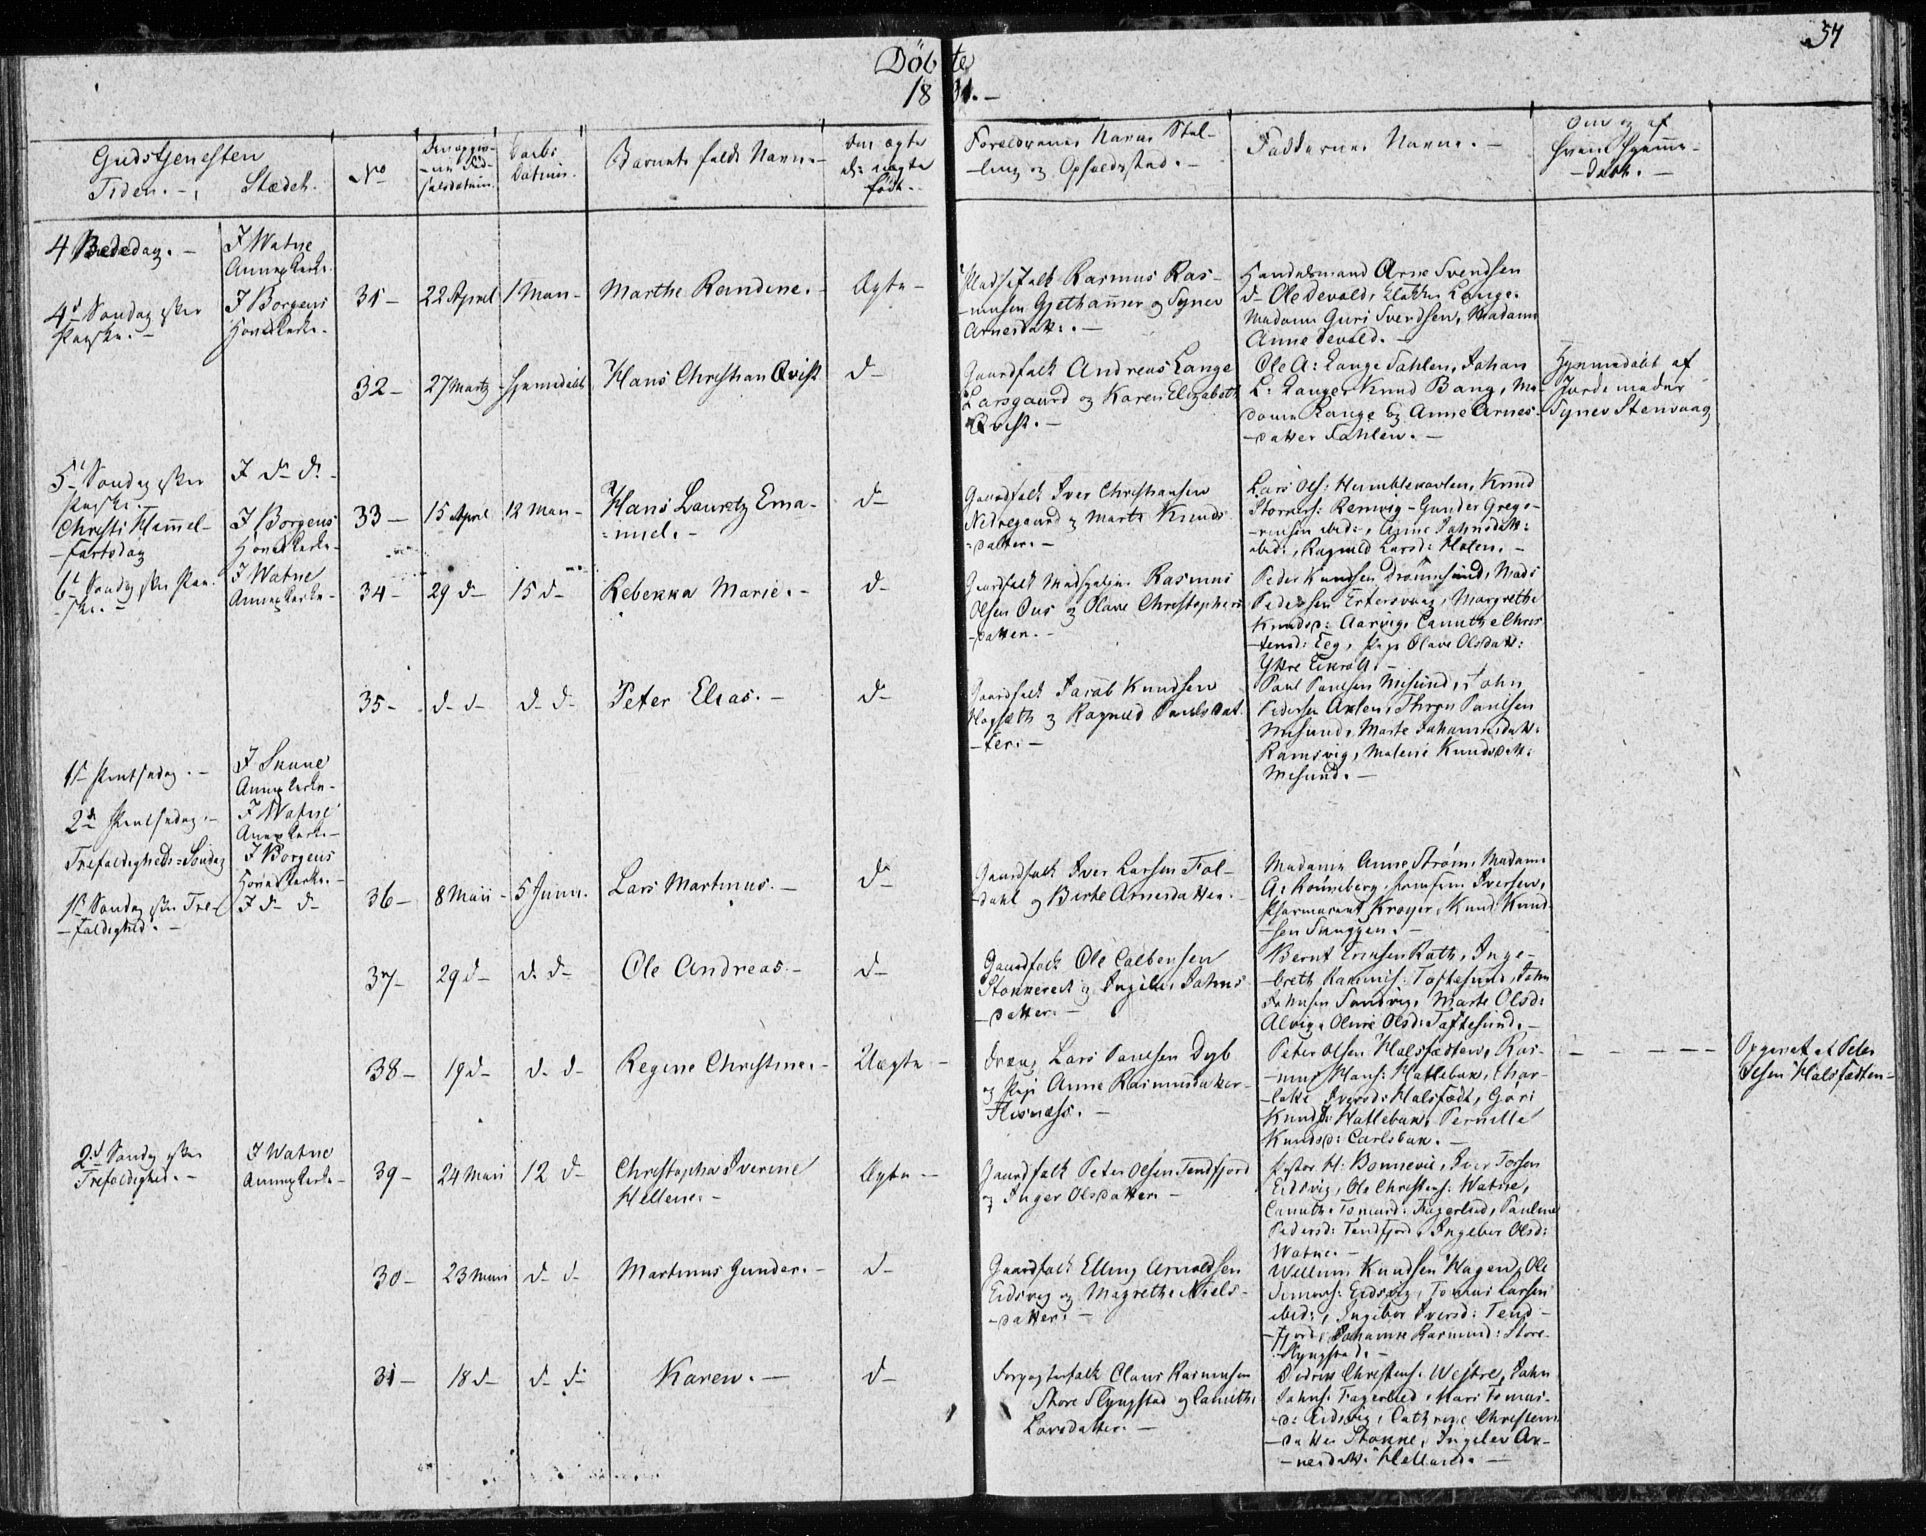 54
Döbte
18 31. -
Gudstjenesten
Tiden. - Stædet.
No
Den opgiv-
-ne Föd-
selsdatum.
Daabs
Datum.
Barnets fulde Navn. -
Om ægte
el: uægte
födt. -
Forældrenes Navne Stil-
-ling og Opholdsstad. -
Faddernes Navne. -
Om og af
hvem Hjemme-
-döbt. -
4 Bededag. -
I Watne
Annexkerke.
4d Sondag efter
Paaske. -
I Borgens
Hovedkerke. -
31 -
22 April
1 Maii -
Marthe Randine. -
Ægte -
Pladsefolk Rasmus Ras-
-musen Gjethammer og Synev
Arnesdatt: . -
Handelsmand Arne Svendsen
d- Ole Devold, Lange.
Madam Guri Svendsen, Madam
Anne Devold. -
32 -
27 Martz
hjemedöbt
Hans Christian Qvist
d -
Gaardfolk Andreas Lange
Larsgaard og Karen Elizabeth
Qvist. -
Ole A: Lange Sahlen, Johan
L: Lange, Knud Bang, Ma-
dam Lange og Anne Arnes-
-datter Sahlen. -
Hjemmedöbt af
Jordemoder
Synev Stenvaag
5t Sondag efter
Paaske. -
I d- d-. -
Christi Himmel-
-fartsdag
I Borgens
Hovedkerke -
33 -
15 April
12 Maii -
Hans Lauretz Ema-
=nuel. -
d -
Gaardfolk Iver Christiansen
Nedregaard og Marte Knuds
=datter. -
Lars Ols: Humblekorlen, Knud
Remvig - Gunder Grego-
-riusen ibid:, Anne Johnsdatt:
ibid:, Ragnild Larsd: Holen. -
6t Sondag efter Paa-
-ske. -
I Watne
Annexkerke -
34 -
29 d -
15 d -
Rebekka Marie. -
d -
Gaardfolk Rasmus
Olsen Ous og Olave Christophers
-datter. -
Peder Knudsen Drömmesund, Mads
Pedersen Ertersvaag, Margrethe
Knudsd: Aarvig, Canuthe Chris
-tensd: Eeg, Pige Olave Olsdatt:
Yttre Ekroll. -
35 -
d- d-
d- d-
Peter Elias. -
d -
Gaardfolk Jacob Knudsen
og Ragnild Poulsdat-
-ter. -
Poul Poulsen Misund, John
Pedersen Axlen, Poulsen
Misund, Marte Johannesdatt:
Ramsvig, Malene Knudsdatt:
Misund. -
1ste Pintsedag. -
I Sunne
Annexkerke -
2den Pintsedag. -
I Watne
Annexkerke -
Trefoldigheds=Sondag
I Borgens
Hovedkerke. -
1st Sondag efter Tre-
-foldighed. -
I d- d-
36 -
8 Maii -
5 Junii.
Lars Martinus. -
d -
Gaardfolk Iver Larsen Fol-
-dahl og Birthe Arnesdatter. -
Madame Anne Ström, Madam
A: Rönneberg, Jomfru Iversen,
Pharmaceut Kroyer, Knud Knud-
-sen Snuggen. -
37 -
29 d -
d- d-
Ole Andreas. -
d -
Gaardfolk Ole Colbensen
og Ingelev Johns
-datter. -
Bernt Roth, Inge-
-breth Rasmus: Toftesund, John
Johnsen Sandvig, Marte Olsd:
Alvig, Olivie Olsd: Toftesund. -
38 -
19 d -
d- d-
Regine Christine. -
Uægte -
Dreng Lars Poulsen Dyb
og Pige Anne Rasmusdatter
Flisnæss. -
Peter Olsen Halsfædten, Ras-
-mus Hans: Hatlebak, Char-
-lotte Iversd: Halsfædt, Göri
Knudsd: Hatlebak, Pernille
Knudsd: Carlsbak. -
- - - - -
Opgivet at Peter
Olsen Halsfædten -
2d Sondag efter
Trefoldighed. -
I Watne
Annexkerke -
39 -
24 Maii
12 d -
Christopha Iverine
Hellene. -
Ægte -
Gaardfolk Peter Olsen Tendfjord
og Inger Olsdatter -
Pastor H: Bonnevie, Iver Torsen
Eidsvig, Ole Christens: Watne,
Canuthe Tomasd: Fagerlied, Pauline
Pedersd: Tendfjord, Ingebor Olsd:
Watne. -
30 -
23 Maii
d- d-
Martinus Gunder. -
d -
Gaardfolk Elling Arnoldsen
Eidsvig og Magrethe Niels-
-datter. -
Willum Knudsen Hagen, Ole
Simens: Eidsvig, Tomas Larsen
ibid:, Ingebor Iversd: Tend-
-fjord, Johanne Rasmusd: Store-
Slyngstad. -
31 -
18 d -
d- d-
Karen. -
d -
Forpagterfolk Claus Rasmusen
Store Slyngstad og Canuthe
Larsdatter. -
Didrik Christens: Westre, John
Johns: Fagerlied, Mari Tomas-
-d: Eidsvig, Cathrine Christens
-datter Stokke, Ingelev Ar-
-nesdatt: Helland. -